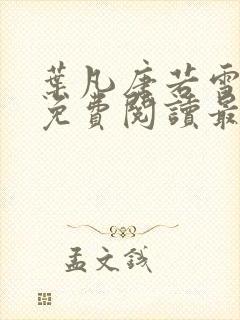 葉凡唐若雪
免費閱讀最
孟文錢